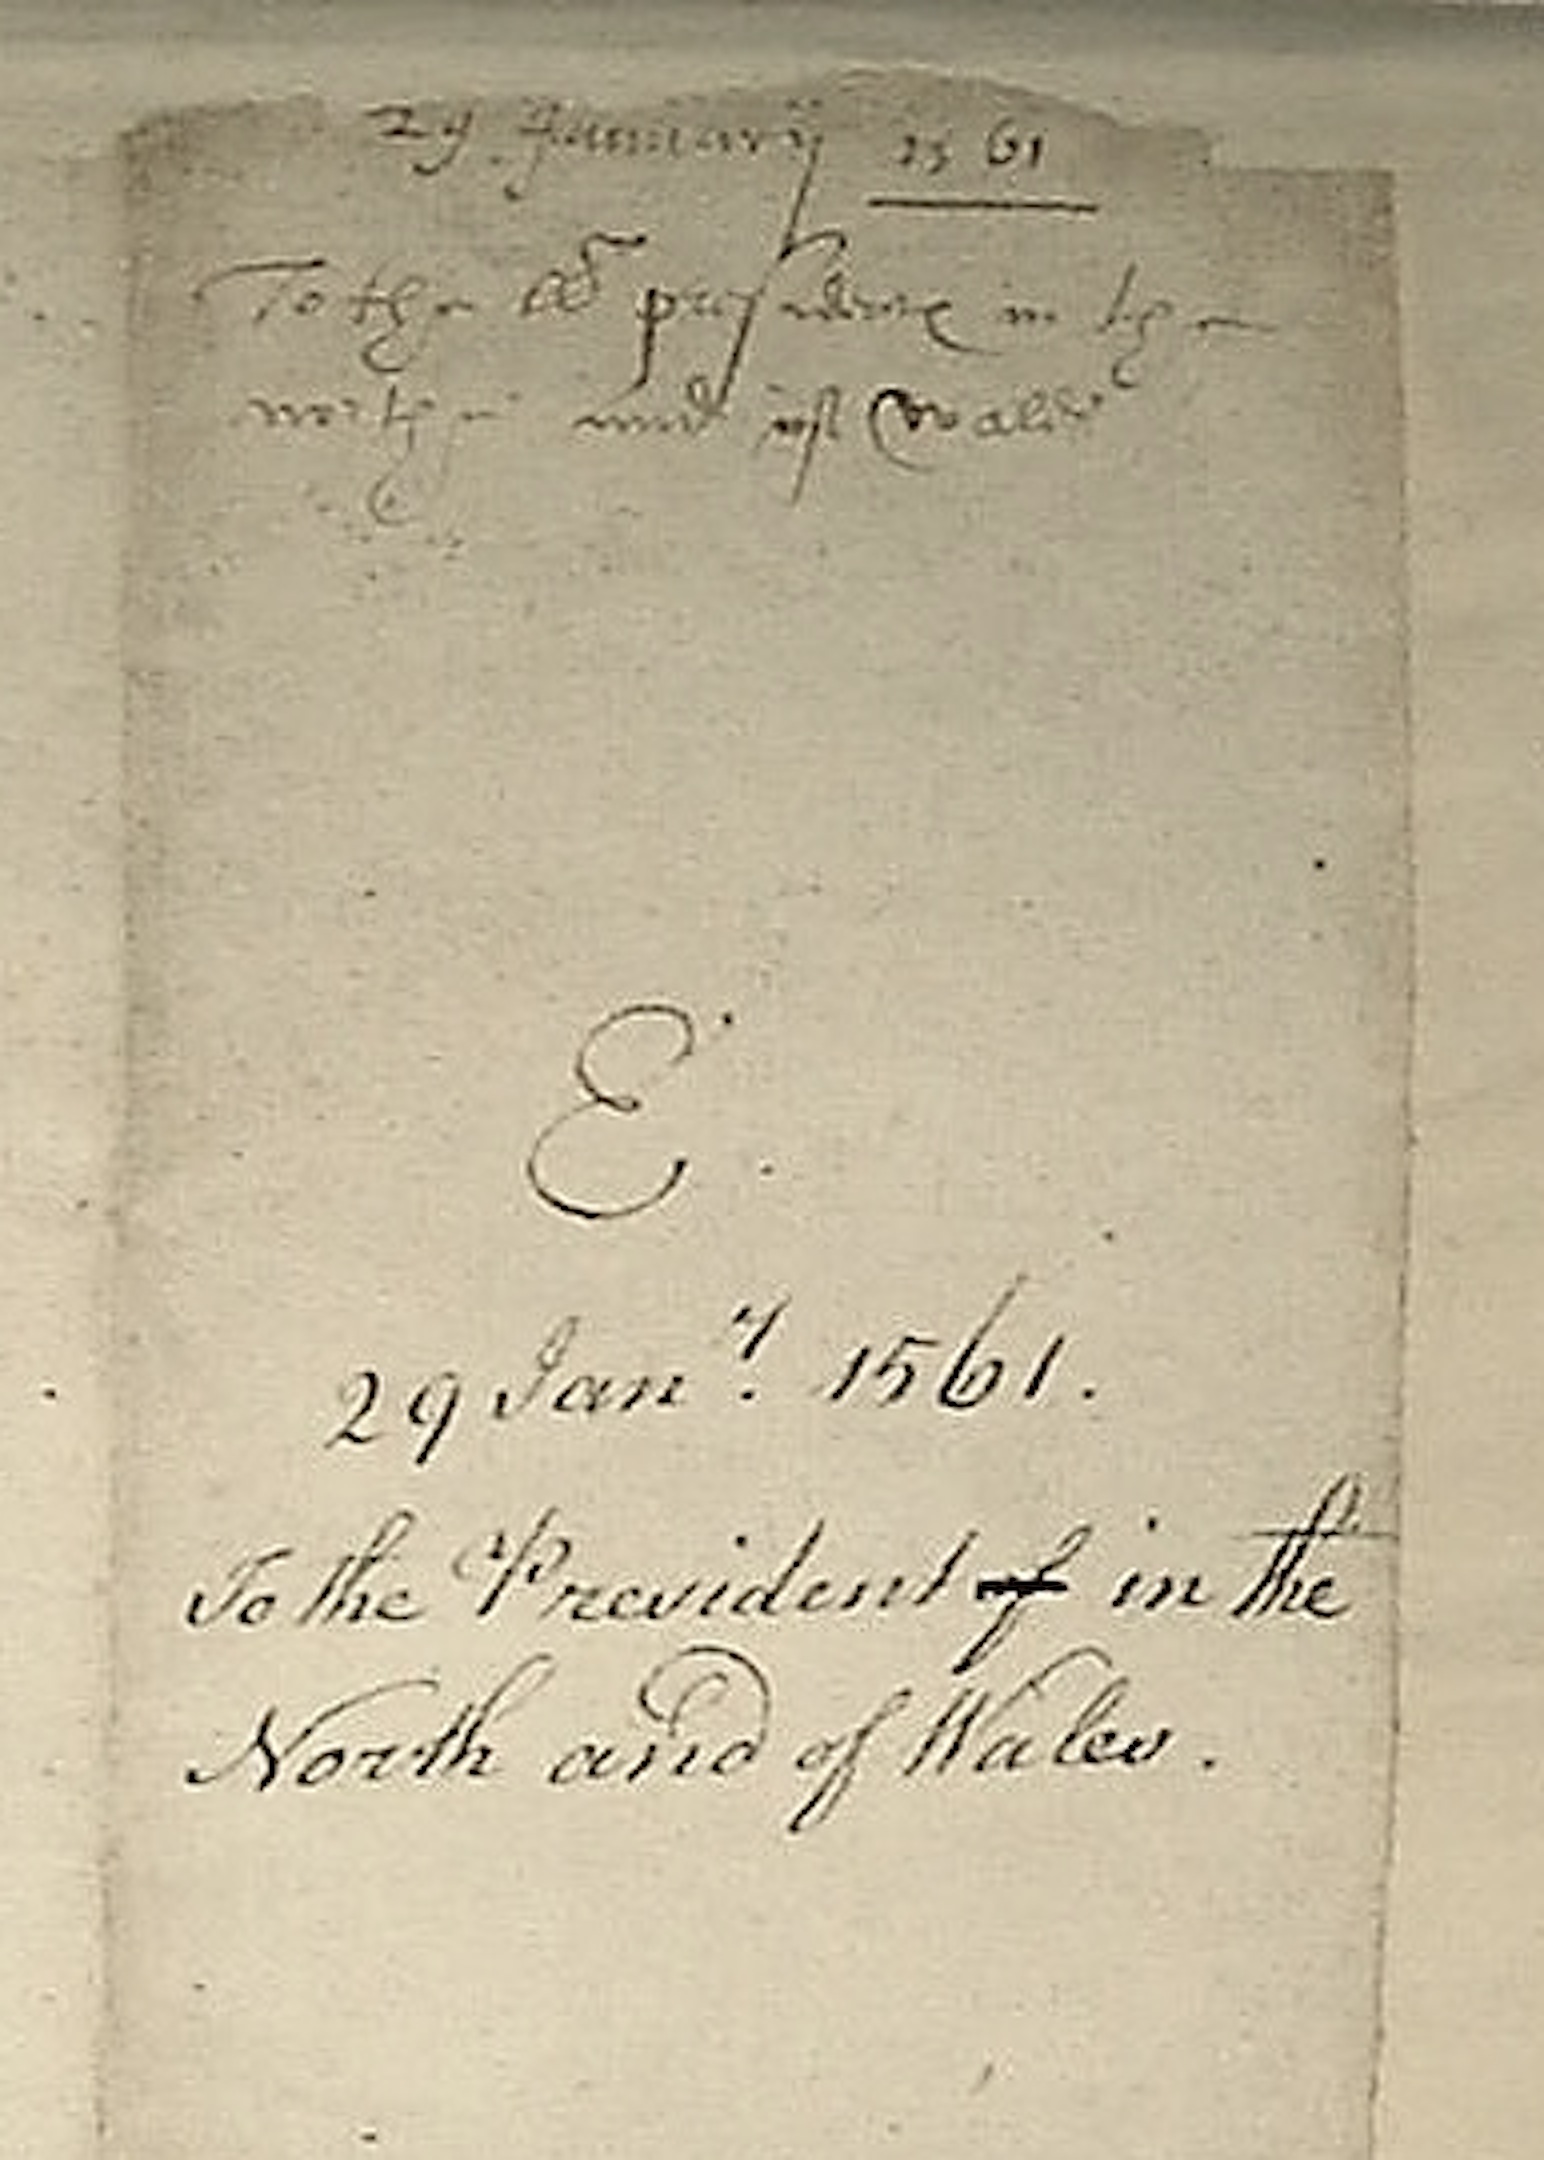 29 January 1561
To the president in the
northe and of Wales
E.
29 Jan.y 1561.
To the President of in the
North and of Wales.